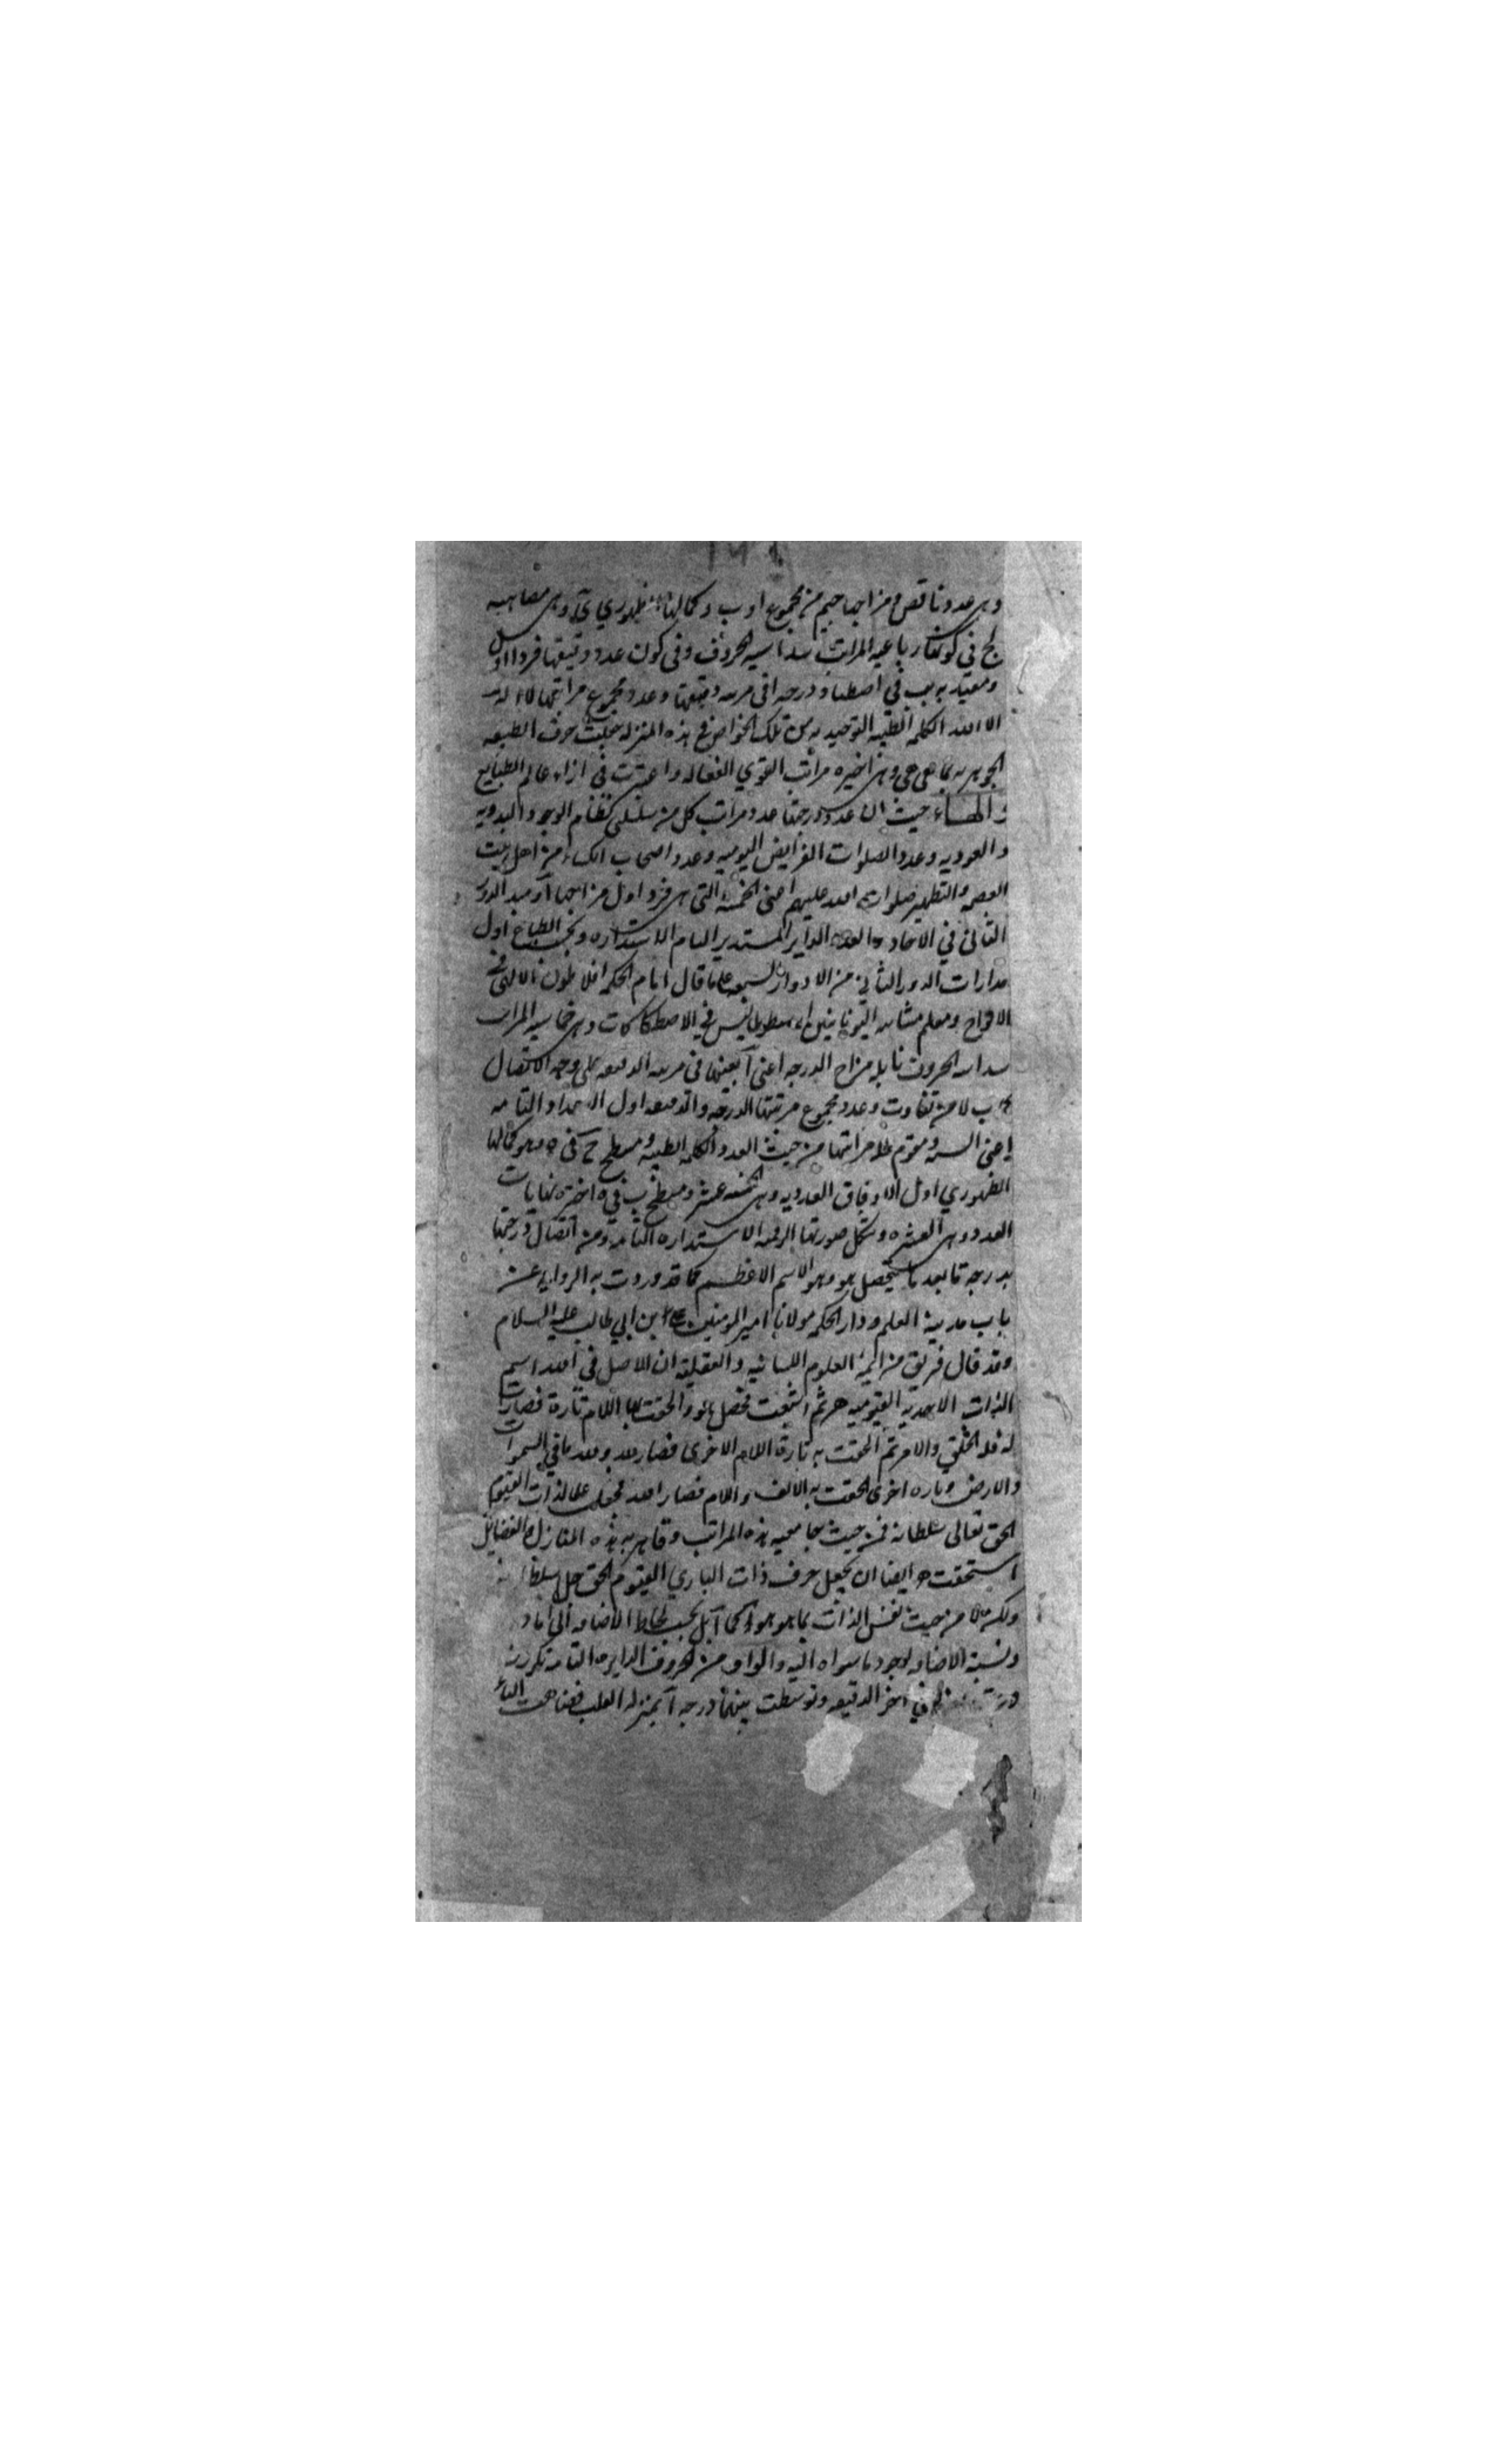 وهى عدد ناقص و مزاجها جيم من مجموع ا و ب و كمالها الظهوري ى وهى مضاهيه
لج في كونها رباعيه المراتب سداسيه الحروف وفى كون عدد دقيقتها فردا اول
درجه فى مرتبه دقيقتها وعدد مجموع مراتبها لا اله
الا الله الكلمه الطيبه التوحيديه من تلك الخواص فى هذه المنزله جعلت حرف الطبيعه
الجوهريه بما هى هى وهى اخيره مراتب القوي الفعاله واعتبرت فى ازاء عالم الطبايع
والهاء حيث ان عدد درجتها عدد مراتب كل من سلسلتى نظام الوجود البدويه
والعوديه وعدد الصلوات الفرايض اليوميه وعدد اصحاب الكساء من اهل بيت
العصمه والتطهير صلوات الله عليهم اعنى الخمسه التى هى فرد اول مزاجها آ و مبدا الدور
الثانى في الآحاد والعدد الداير المستدير التام الاستداره وبحسب الطباع اول
مدارات الدور الثاني من الادوار السبعه على ما قال امام الحكمه افلاطون الالهى فى
الافراح ومعلم مشائيه اليونانيين ارسطوطاليس في الاصطكاكات وهى خماسيه المراتب
سداسيه الحروف نابله مزاج الدرجه اعنى آ بعينها فى مرتبه الدقيقه على وجه الاتصال
لا من تفاوت وعدد مجموع مرتبتها الدرجه والدقيقه اول الاعداد التامه
اعنى السته ومقوم مراتبها من حيث العدد الكلمه الطيبه ومسطح ج فى ه وهو كمالها
الظهوري اول الاوفاق العدديه وهى الخمسه عشر ومسطح ب في ه اخيره نهايات
العدد وهى العشره وشكل صورتها الرقميه الاستداره التامه ومن اتصال درجتها
بدرجه تا بعد ما يتحصل هو وهو الاسم الاعظم كما قد وردت به الروايه عن
باب مدينة العلم ودار الحكمه مولانا امير المومنين على ابن ابي طالب عليه السلام
وقد قال فريق من ائمة العلوم اللسانيه والعقليه ان الاصل فى الله اسم
الذات الاحديه القيوميه ه ثم اشبعت فحصل هو والحقت بها اللام تارة فصارت
له فله الخلق والامر ثم الحقت به تارة اللام الاخرى فصار لله ولله ما في السموات
والارض وتاره اخرى الحقت به الالف واللام فصار الله فجعل علما لذات القيوم
الحق تعالى سلطانه فمن حيث جامعيه هذه المراتب وقاهريه هذه المنازل والفضايل
استحقت ه ايضا ان يجعل حرف ذات الباري القيوم الحق جل سلطانه
ولكن لا من حيث نفس الذات بما هو هو كما آ بل بحسب لحاظ الاضافه الى
ونسبة الاضافه لوجود ما سواه اليه والواو من الحروف الدايره التامه تكررت
في اخر الدقيقه وتوسطت بينهما درجه آ بمنزله القلب فضاهت الهاء